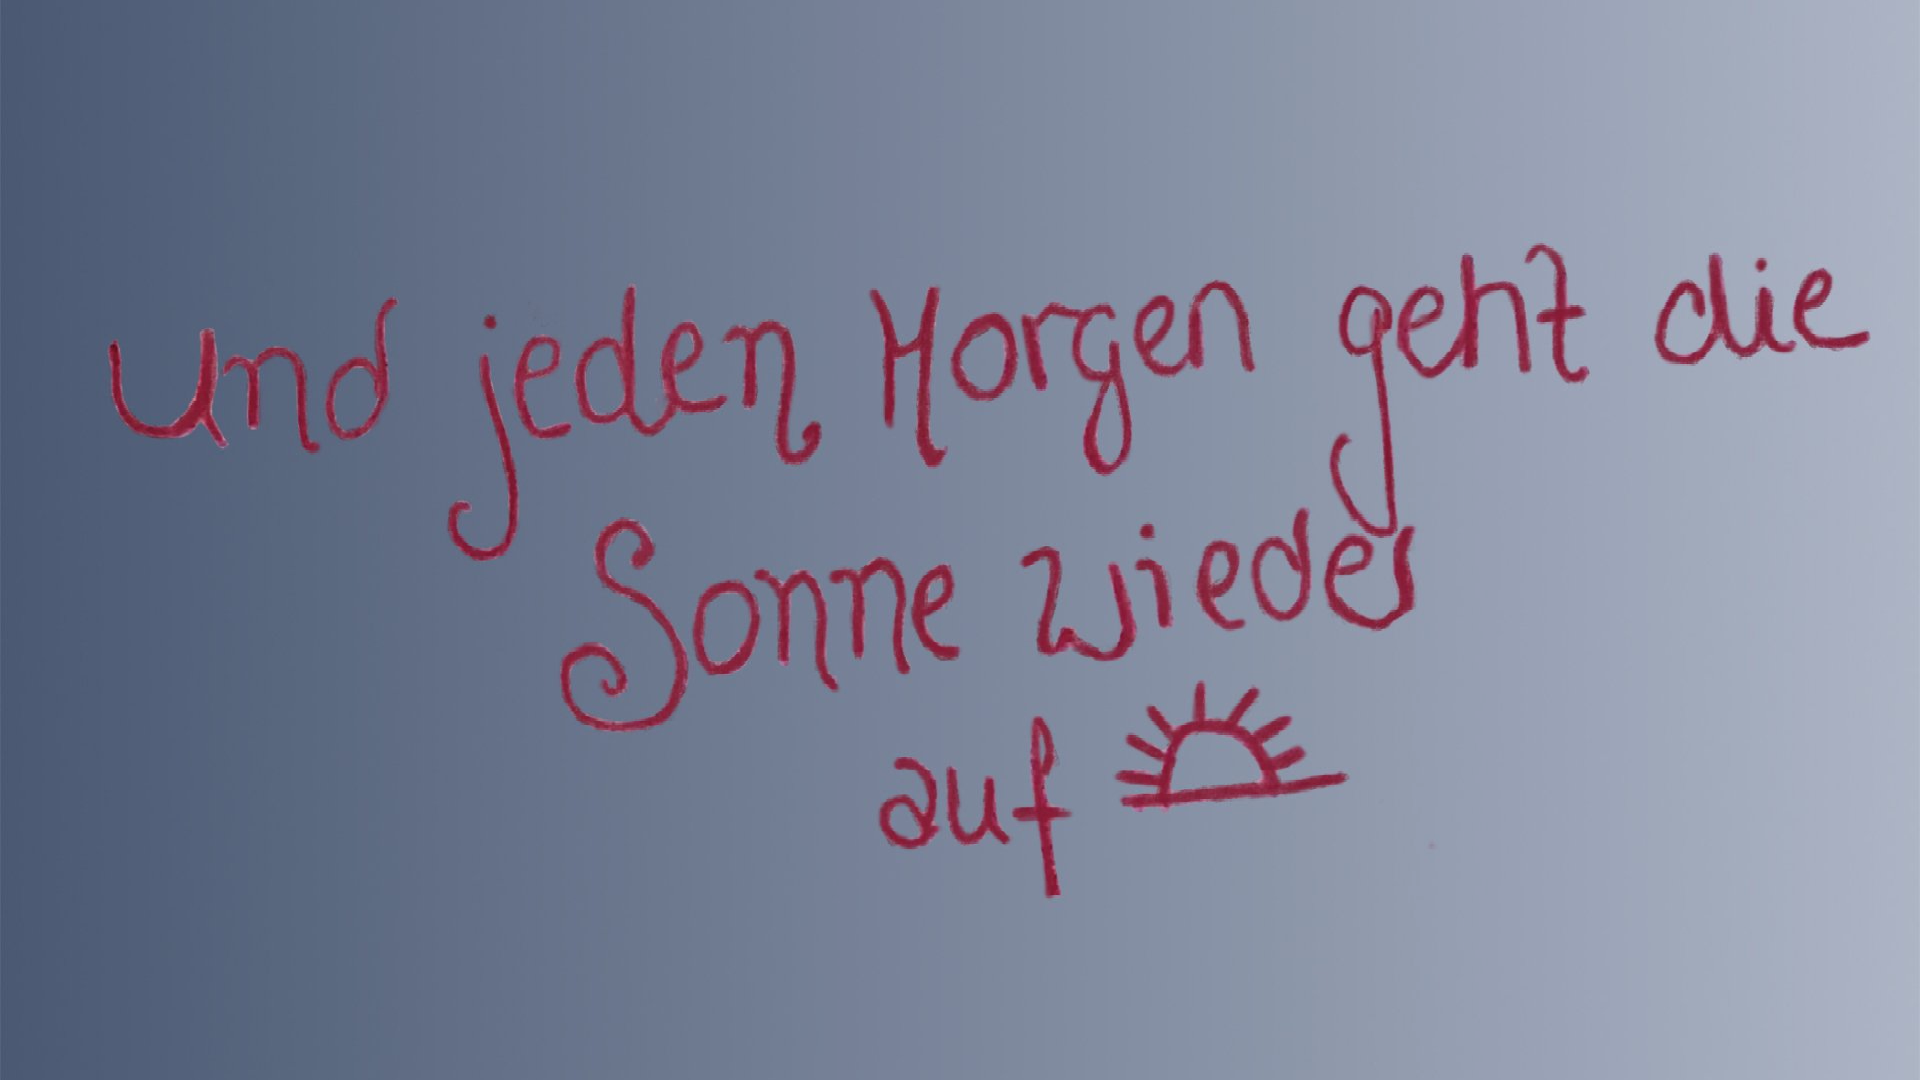 Und jeden Morgen geht die
Sonne wieder
auf